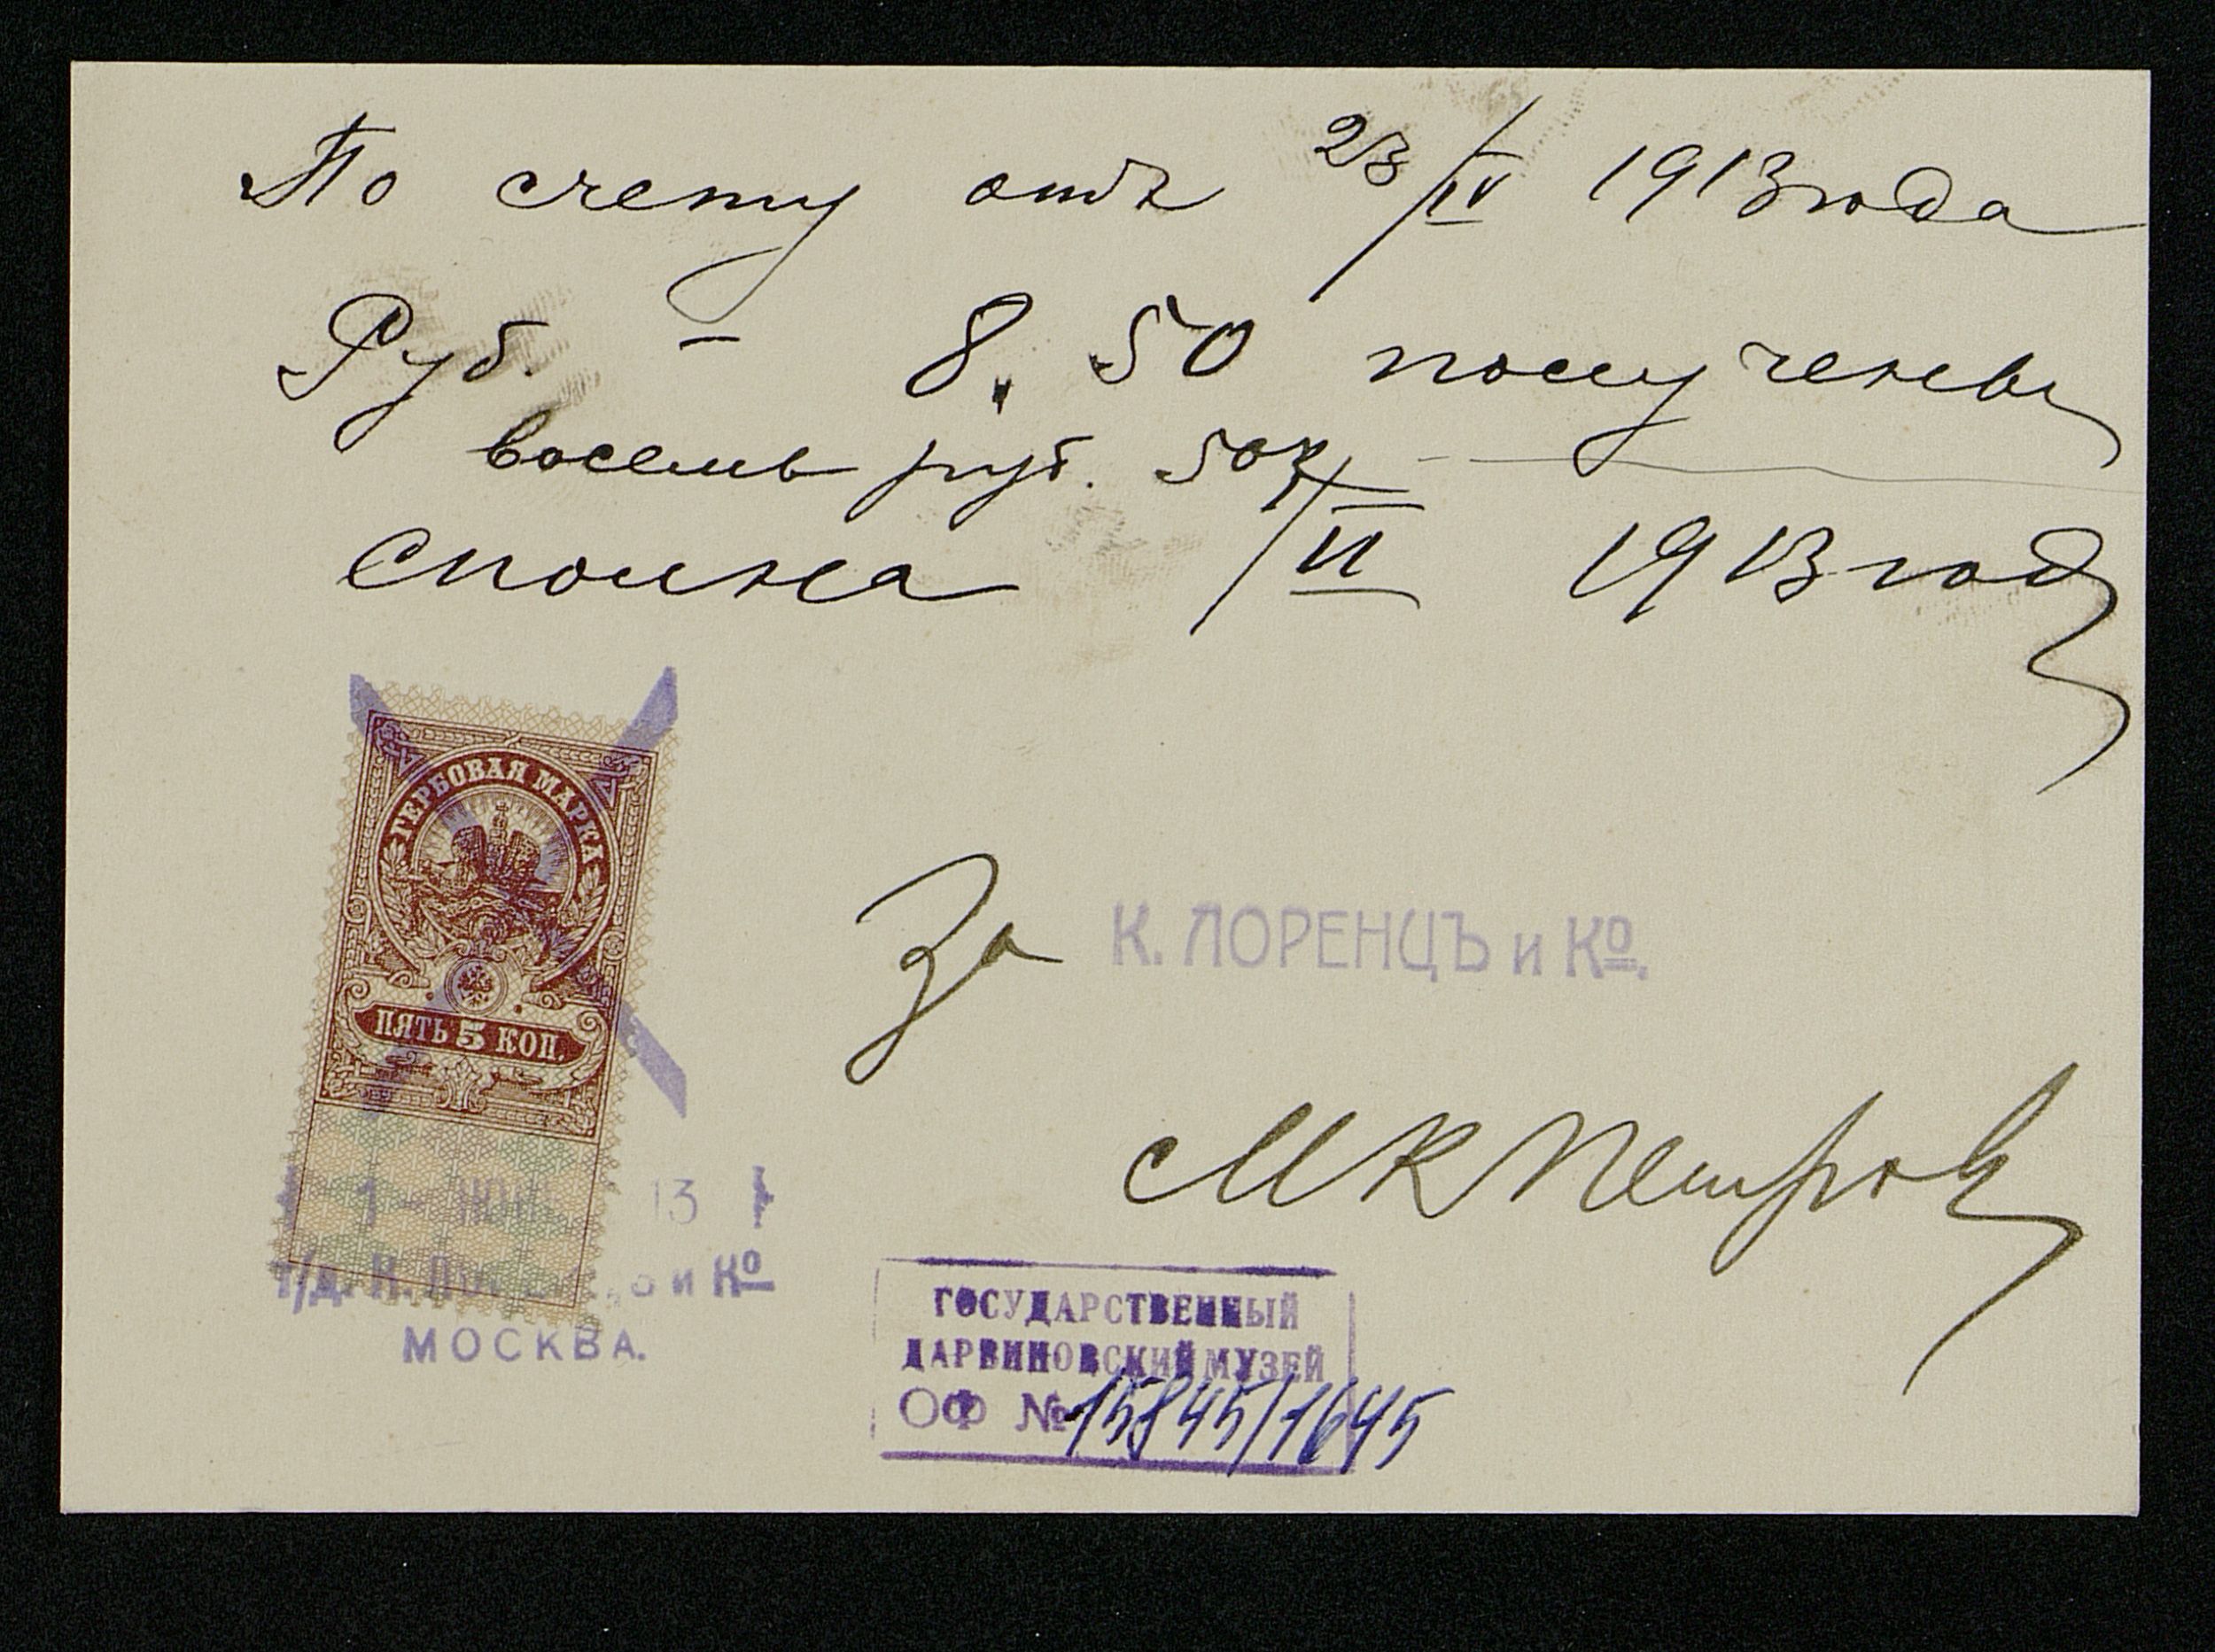 По счету отъ 23/IV 1913 года
Руб. – 8.50 получены
восемь руб. 50к
сполна /VI 1913 год
ГЕРБОВАЯ МАРКА
ПЯТЬ 5 КОП.
За К. ЛОРЕНЦЪ и Ко.
МК Петров
1 - 13
Т/Д. и Ко
МОСКВА.
ГОСУДАРСТВЕННЫЙ
ДАРВИНОВСКИЙ МУЗЕЙ
ОФ № 15845/1645